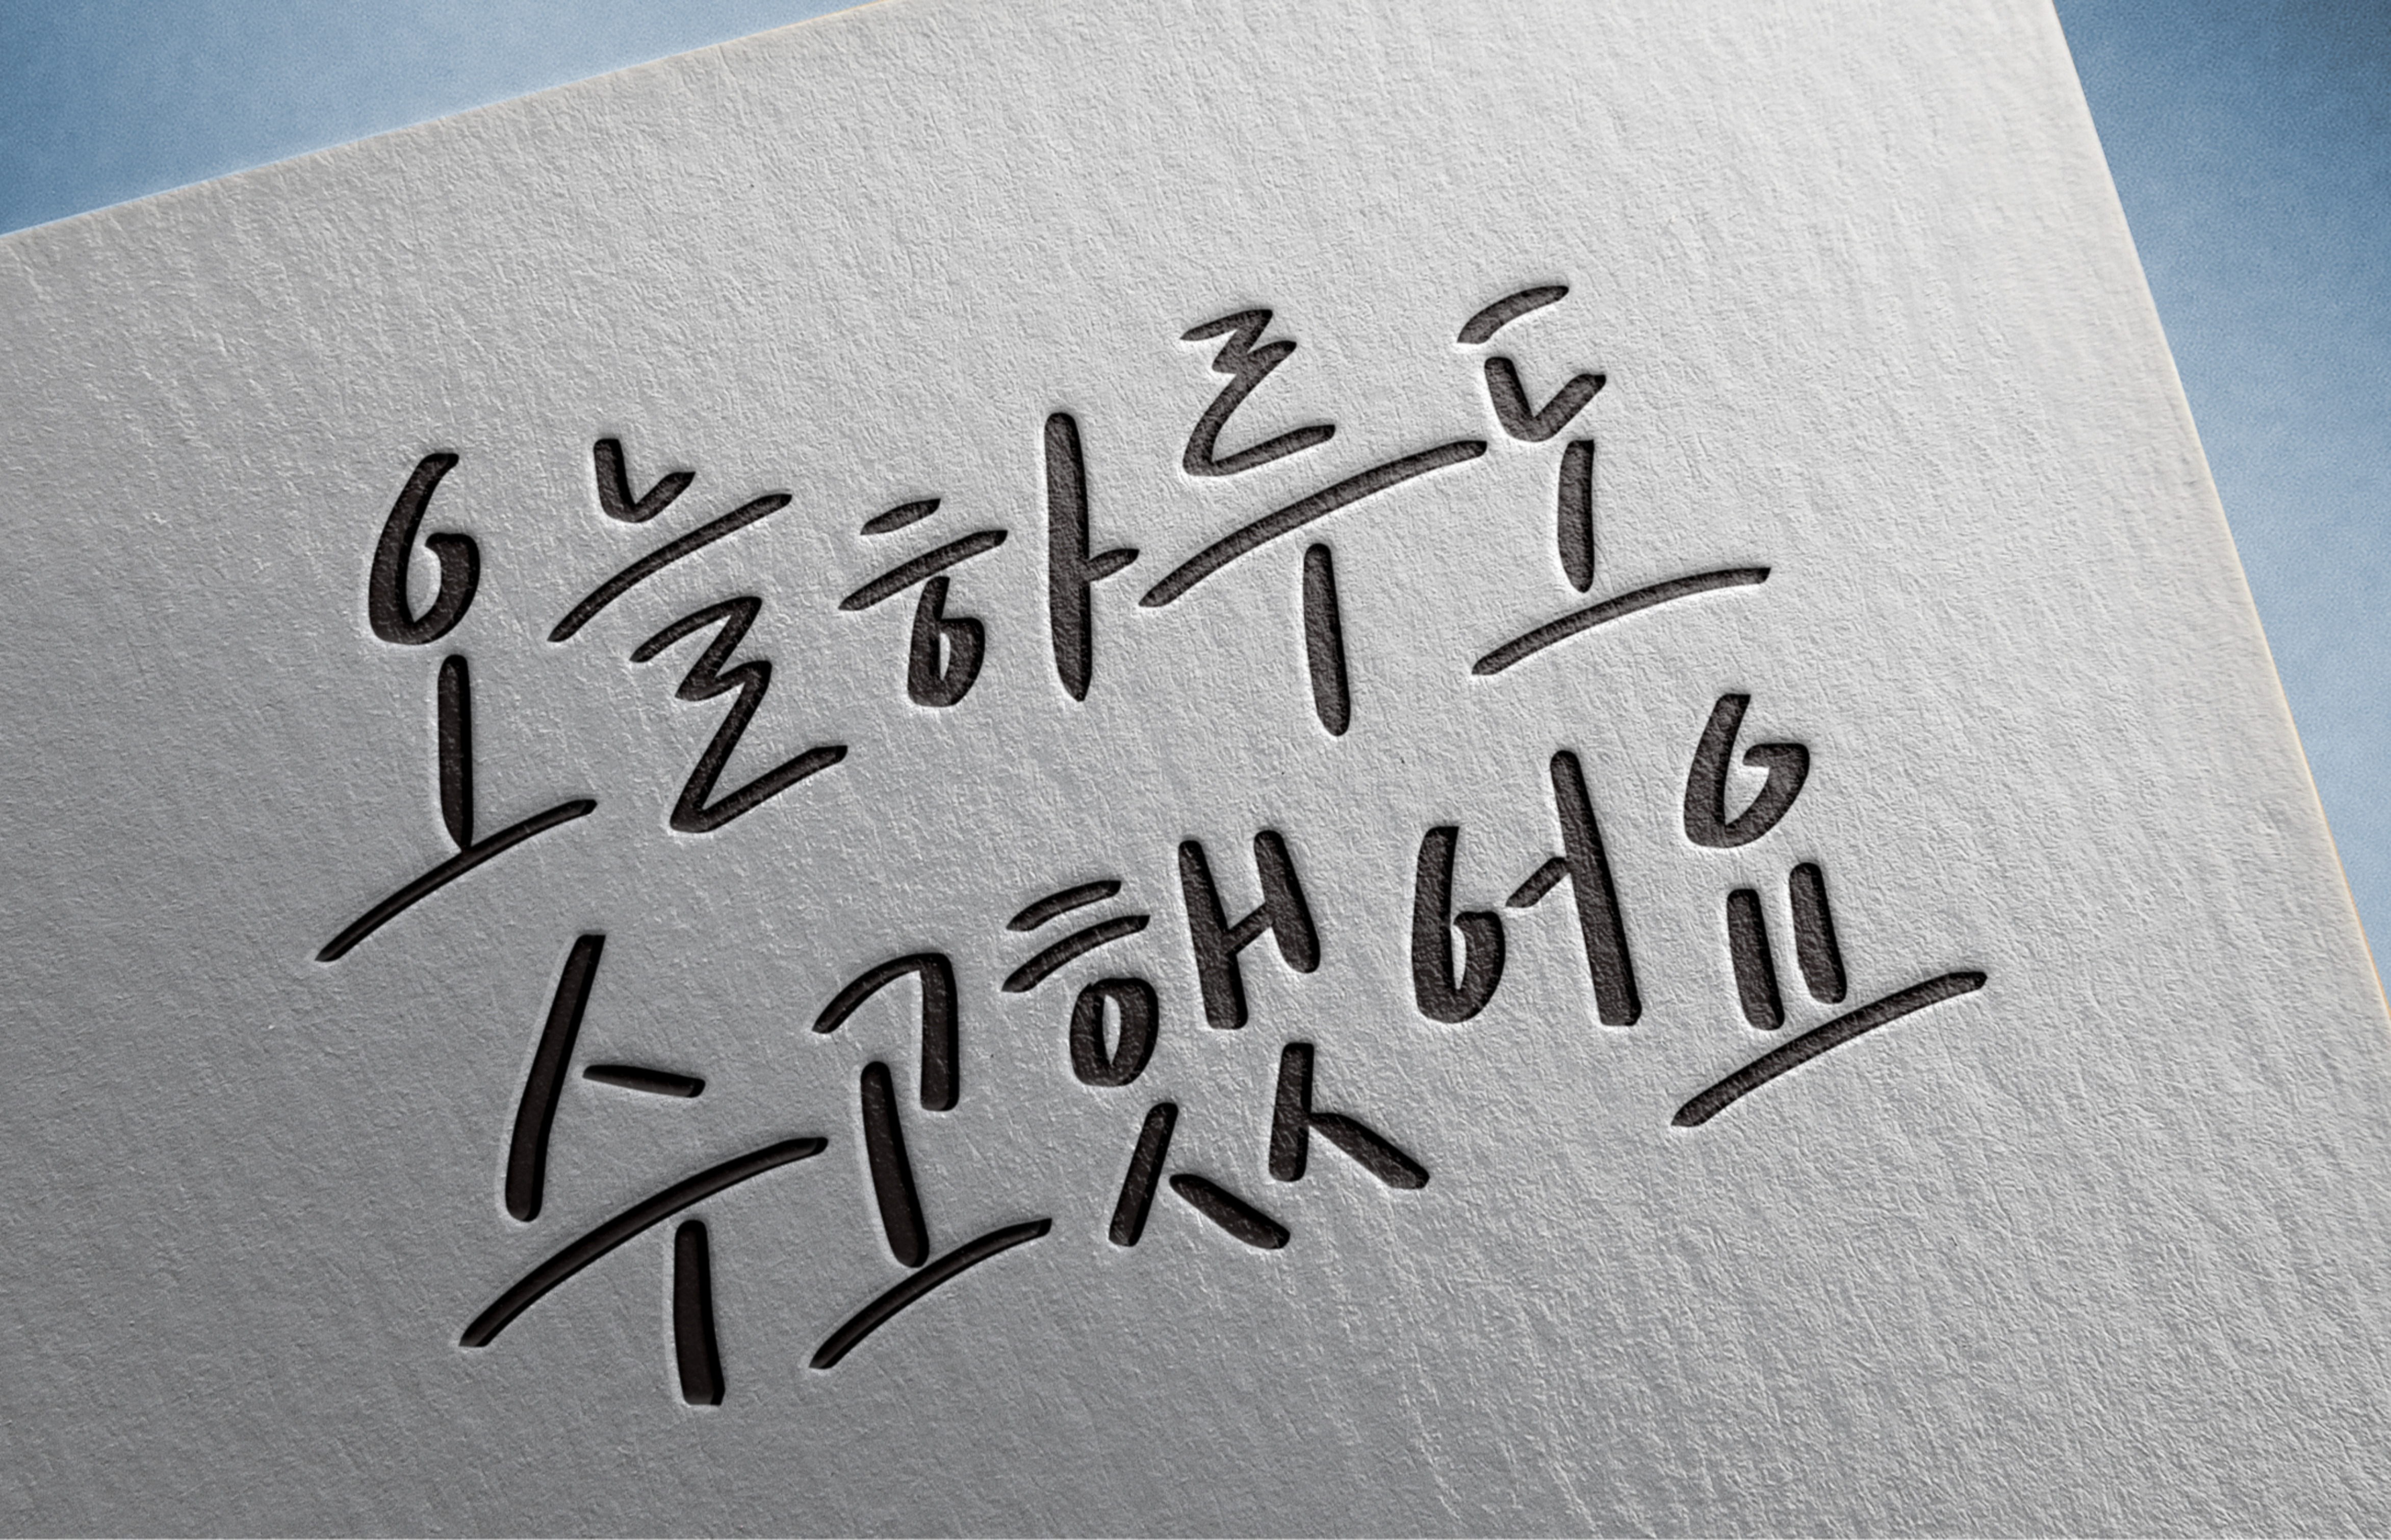 오늘하루도
수고했어요